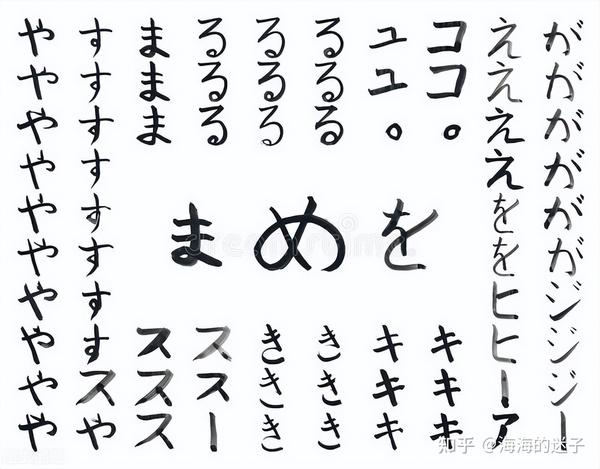 ががががががジジジー
ええええををヒヒーア
ココ。
ユユ。
るるる
るるる
るるる
ままま
まめを
キキキ
キキキ
ききき
ききき
ススー
ススス
すすすすすすすすスや
やややややややややや
知乎 @海海的迷子